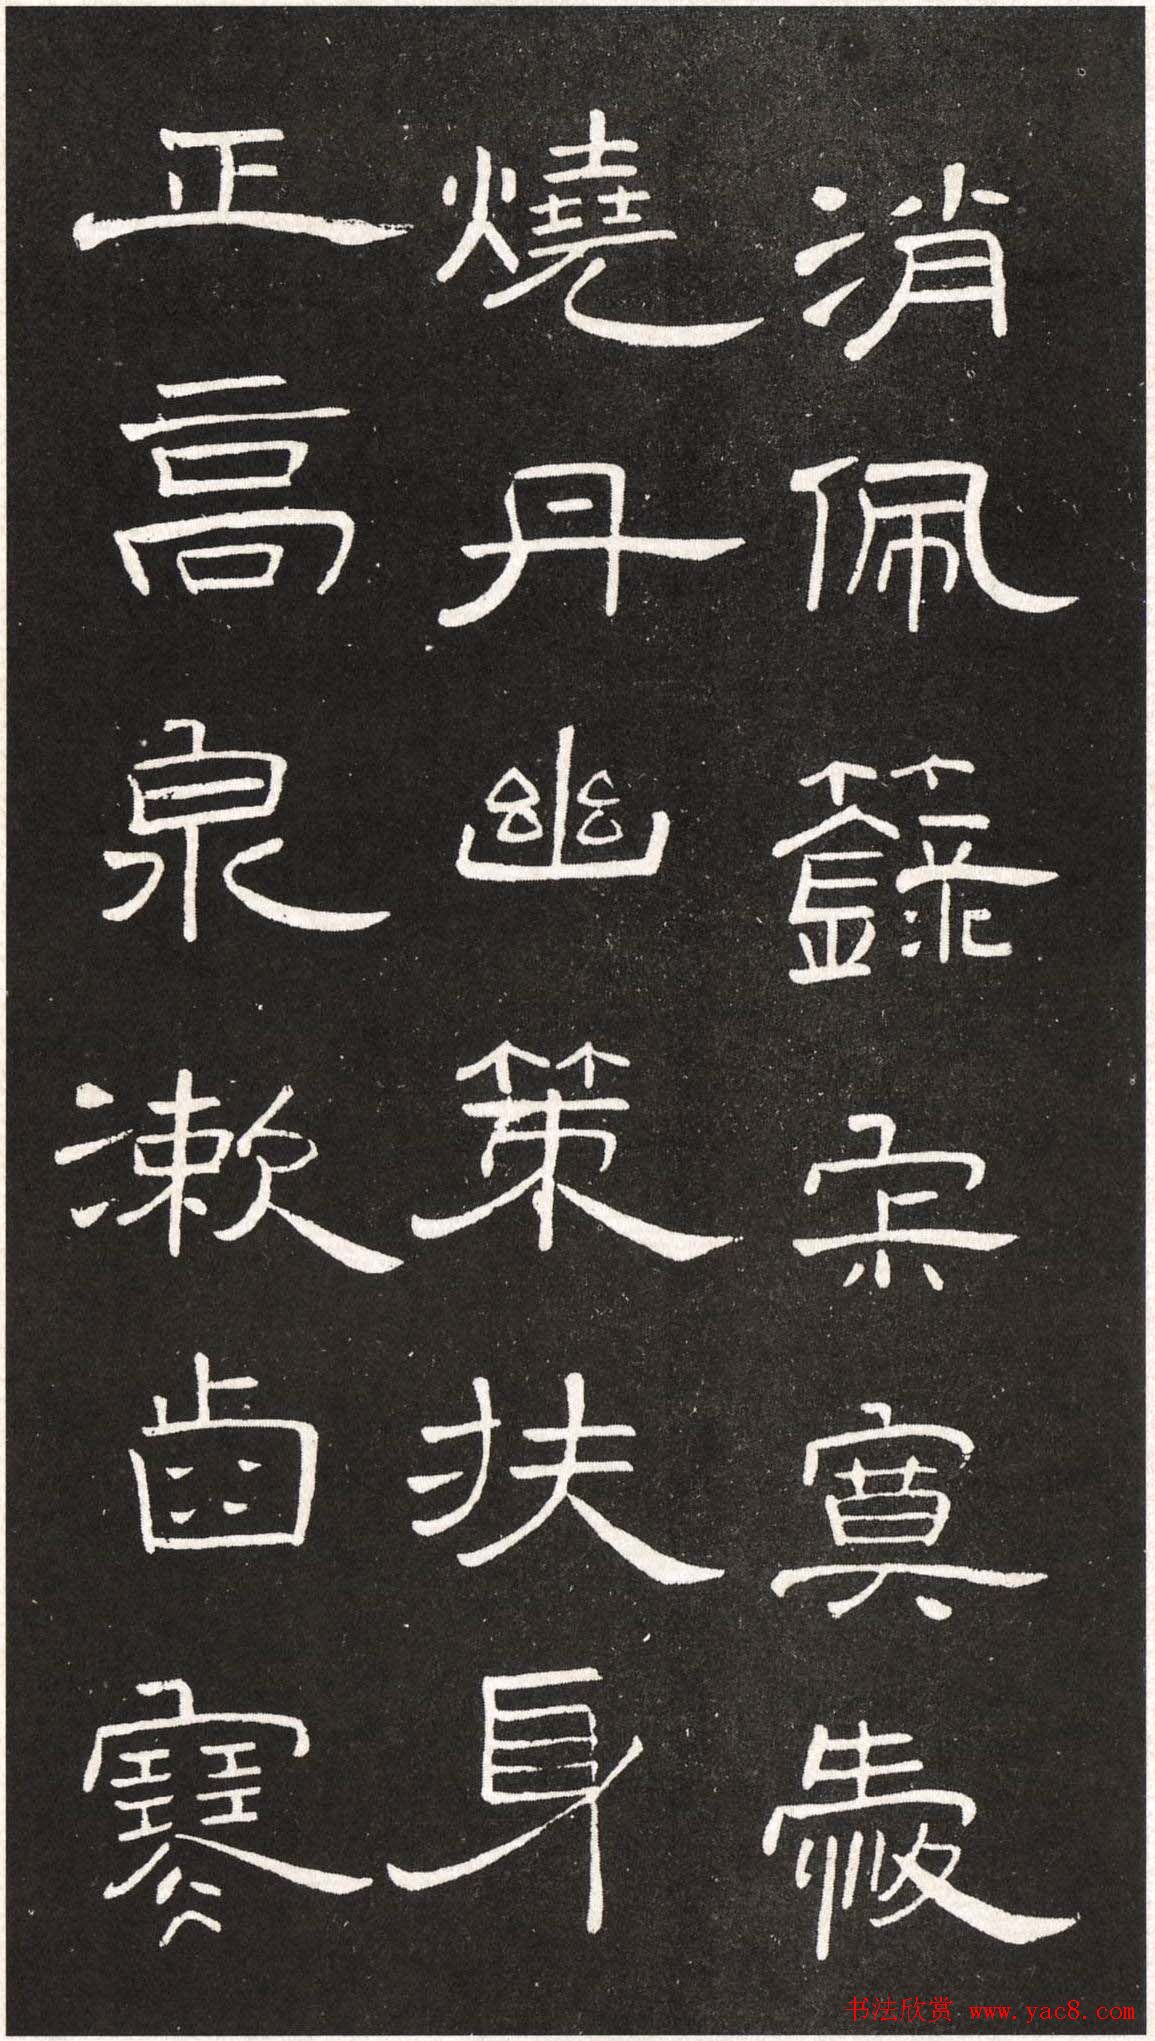 消佩籙宗寞
燒丹幽策扶身
正高泉漱齒寒
书法欣赏 www.yac8.com